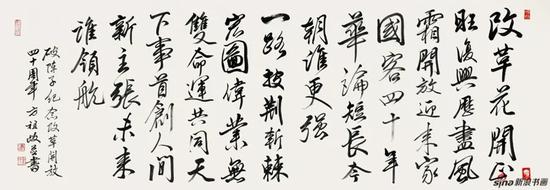 改革花開正
旺復興歷盡風
霜開放迎来家
國容四十年
華論短長今
朝誰更强
一路披荆斬棘
宏圖偉業無
雙命運共同天
下事首創人間
新主張未来
誰領航
破陣子紀念改革開放
四十周年 方祖岐并書
sina新浪书画